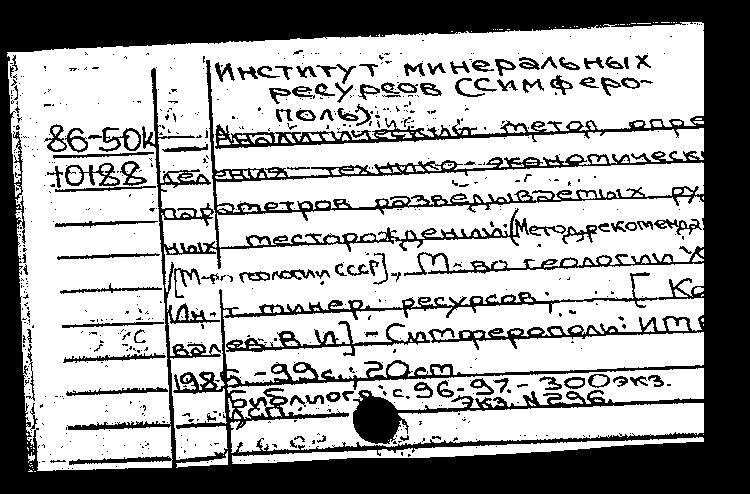 Институт минеральных
ресурсов (Симферо-
поль).
86-50к — Аналитический метод опре
10188 деления технико-экономически
параметров разведываемых ру
ных месторождений: (Метод. рекоменда
/[М-во геологии СССР], М-во геологии У
Ин-т минер. ресурсов; [Ко
валев В. И.] - Симферополь: ИМР
1985. - 99 с.; 20 см.
Библиогр.: с. 96-97. - 300 экз.
ДСП. Экз. N 296.